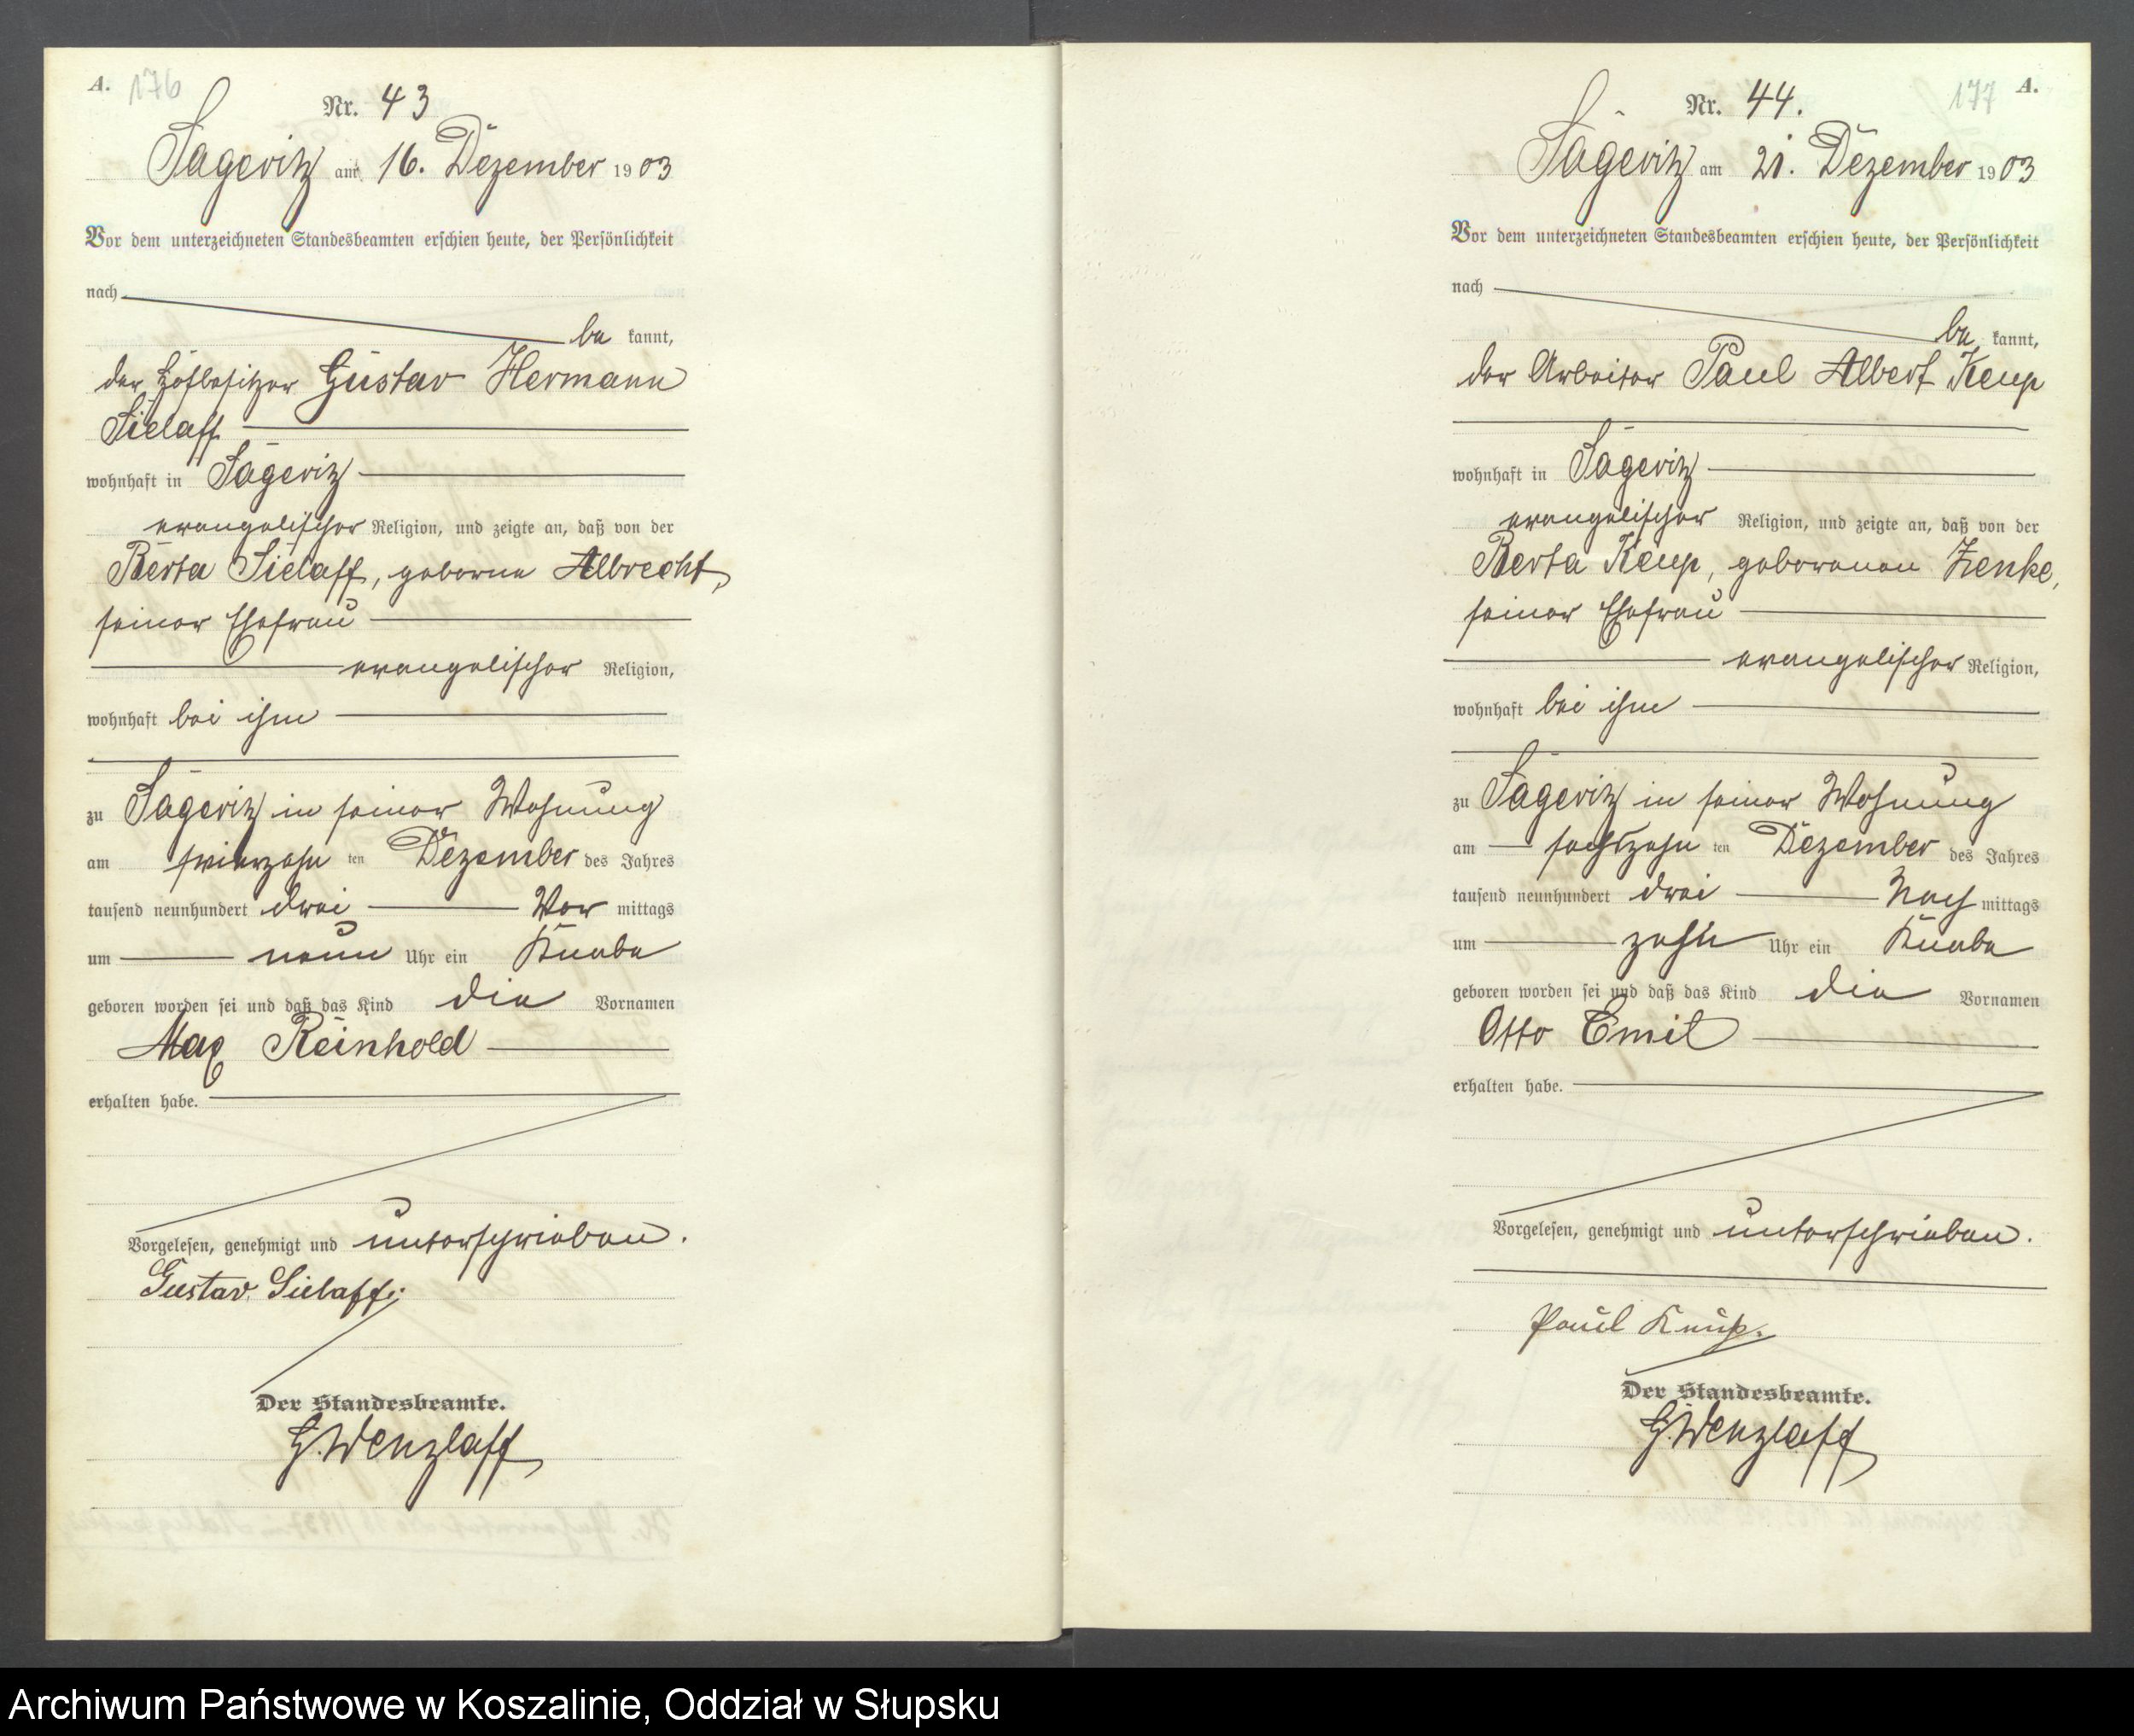 A. 176
Nr. 43
Sageritz am 16. Dezember 1903
Vor dem unterzeichneten Standesbeamten erschien heute, der Persönlichkeit
nach
be kannt,
der Hofbesitzer Gustav Hermann
Sielaff
wohnhaft in Sageritz
evangelischer Religion, und zeigte an, daß von der
Berta Sielaff, geborne Albrecht,
seiner Ehefrau
evangelischer Religion,
wohnhaft bei ihm
zu Sageritz in seiner Wohnung
am vierzehn ten Dezember des Jahres
tausend neunhundert drei Vor mittags
um neun Uhr ein Knabe
geboren worden sei und daß das Kind die Vornamen
Max Reinhold
erhalten habe.
Vorgelesen, genehmigt und unterschrieben.
Gustav Sielaff.
Der Standesbeamte.
G. Wenzlaff
177 A.
Nr. 44.
Sageritz am 21. Dezember 1903
Vor dem unterzeichneten Standesbeamten erschien heute, der Persönlichkeit
nach
be kannt,
der Arbeiter Paul Albert Keup
wohnhaft in Sageritz
evangelischer Religion, und zeigte an, daß von der
Berta Keup, geborenen Zenke,
seiner Ehefrau
evangelischer Religion,
wohnhaft bei ihm
zu Sageritz in seiner Wohnung
am sechszehn ten Dezember des Jahres
tausend neunhundert drei Nach mittags
um zehn Uhr ein Knabe
geboren worden sei und daß das Kind die Vornamen
Otto Emil
erhalten habe.
Vorgelesen, genehmigt und unterschrieben.
Paul Keup.
Der Standesbeamte.
G. Wenzlaff
Archiwum Państwowe w Koszalinie, Oddział w Słupsku